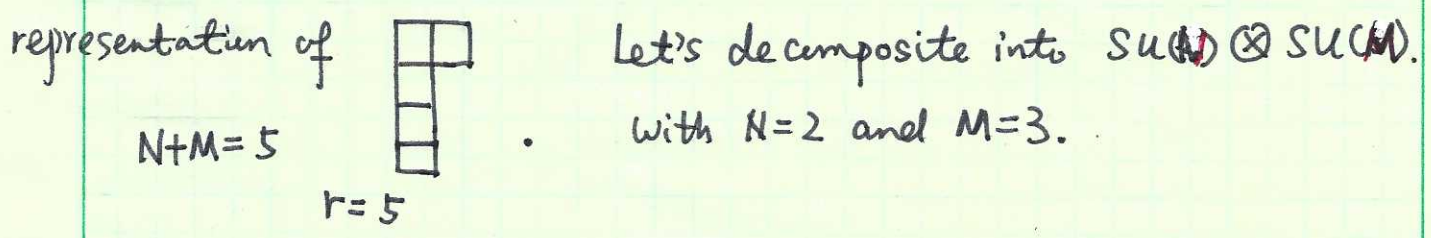 representation of Let's decomposite into SU(N) ⊗ SU(M).
N+M=5 . with N=2 and M=3.
r=5